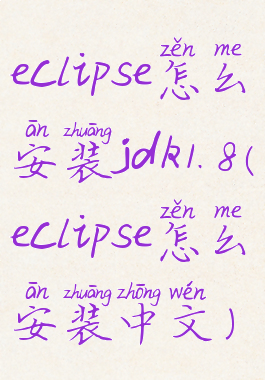 zěn me
eclipse怎么
ān zhuāng
安装jdk1.8(
zěn me
eclipse怎么
ān zhuāng zhōng wén
安装中文)